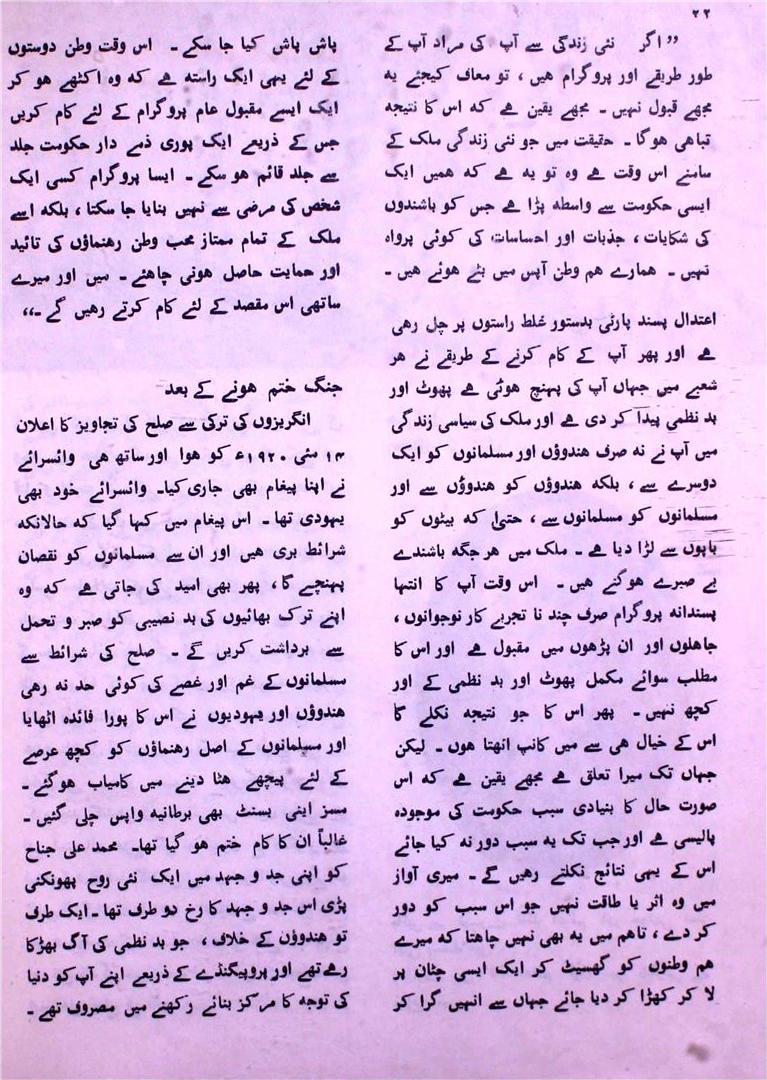 ۲۲
’’اگر نئی زندگی سے آپ کی مراد آپ کے
طور طریقے اور پروگرام ھیں ، تو معاف کیجئے یہ
مجھے قبول نہیں ۔ مجھے یقین ھے کہ اس کا نتیجہ
تباھی ھوگا ۔ حقیقت میں جو نئی زندگی ملک کے
سامنے اس وقت ھے وہ تو یہ ھے کہ ھمیں ایک
ایسی حکومت سے واسطہ پڑا ھے جس کو باشندوں
کی شکایات ، جذبات اور احساسات کی کوئی پرواہ
نہیں ۔ ھمارے ھم وطن آپس میں بٹے ھوئے ھیں ۔
اعتدال پسند پارٹی بدستور غلط راستوں پر چل رھی
ھے اور پھر آپ کے کام کرنے کے طریقے نے ھر
شعبے میں جہاں آپ کی پہنچ ھوئی ھے پھوٹ اور
بد نظمی پیدا کر دی ھے اور ملک کی سیاسی زندگی
میں آپ نے نہ صرف ھندوؤں اور مسلمانوں کو ایک
دوسرے سے ، بلکہ ھندوؤں کو ھندوؤں سے اور
مسلمانوں کو مسلمانوں سے ، حتیٰ کہ بیٹوں کو
باپوں سے لڑا دیا ھے ۔ ملک میں ھر جگہ باشندے
بے صبرے ھوگئے ھیں ۔ اس وقت آپ کا انتہا
پسندانہ پروگرام صرف چند نا تجربے کار نوجوانوں ،
جاھلوں اور ان پڑھوں میں مقبول ھے اور اس کا
مطلب سوائے مکمل پھوٹ اور بد نظمی کے اور
کچھ نہیں ۔ پھر اس کا جو نتیجہ نکلے گا
اس کے خیال ھی سے میں کانپ اٹھتا ھوں ۔ لیکن
جہاں تک میرا تعلق ھے مجھے یقین ھے کہ اس
صورت حال کا بنیادی سبب حکومت کی موجودہ
پالیسی ھے اور جب تک یہ سبب دور نہ کیا جائے
اس کے یہی نتائج نکلتے رھیں گے ۔ میری آواز
میں وہ اثر یا طاقت نہیں جو اس سبب کو دور
کر دے ، تاھم میں یہ بھی نہیں چاھتا کہ میرے
ھم وطنوں کو گھسیٹ کر ایک ایسی چٹان پر
لا کر کھڑا کر دیا جائے جہاں سے انہیں گرا کر
پاش پاش کیا جا سکے ۔ اس وقت وطن دوستوں
کے لئے یہی ایک راستہ ھے کہ وہ اکٹھے ھو کر
ایک ایسے مقبول عام پروگرام کے لئے کام کریں
جس کے ذریعے ایک پوری ذمے دار حکومت جلد
سے جلد قائم ھو سکے ۔ ایسا پروگرام کسی ایک
شخص کی مرضی سے نہیں بنایا جا سکتا ، بلکہ اسے
ملک کے تمام ممتاز محب وطن رھنماؤں کی تائید
اور حمایت حاصل ھونی چاھئے ۔ میں اور میرے
ساتھی اس مقصد کے لئے کام کرتے رھیں گے ۔‘‘
جنگ ختم ھونے کے بعد
انگریزوں کی ترکی سے صلح کی تجاویز کا اعلان
۱۴ مئی ۱۹۲۰ء کو ھوا اور ساتھ ھی وائسرائے
نے اپنا پیغام بھی جاری کیا۔ وائسرائے خود بھی
یہودی تھا ۔ اس پیغام میں کہا گیا کہ حالانکہ
شرائط بری ھیں اور ان سے مسلمانوں کو نقصان
پہنچے گا ، پھر بھی امید کی جاتی ھے کہ وہ
اپنے ترک بھائیوں کی بد نصیبی کو صبر و تحمل
سے برداشت کریں گے ۔ صلح کی شرائط سے
مسلمانوں کے غم اور غصے کی کوئی حد نہ رھی
ھندوؤں اور یہودیوں نے اس کا پورا فائدہ اٹھایا
اور مسلمانوں کے اصل رھنماؤں کو کچھ عرصے
کے لئے پیچھے ھٹا دینے میں کامیاب ھوگئے ۔
مسز اینی بسنٹ بھی برطانیہ واپس چلی گئیں ۔
غالباً ان کا کام ختم ھو گیا تھا۔ محمد علی جناح
کو اپنی جد و جہد میں ایک نئی روح پھونکنی
پڑی اس جد و جہد کا رخ دو طرف تھا ۔ ایک طرف
تو ھندوؤں کے خلاف ، جو بد نظمی کی آگ بھڑکا
رھے تھے اور پروپیگنڈے کے ذریعے اپنے آپ کو دنیا
کی توجہ کا مرکز بنائے رکھنے میں مصروف تھے ۔